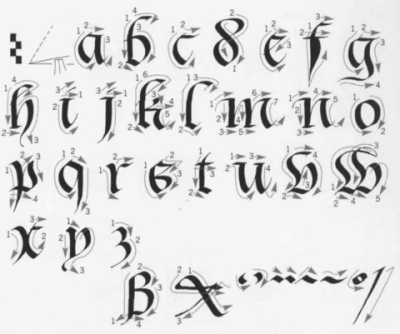 a b c d e f g
h i j k l m n o
p q r s t u v w
x y z
ß &